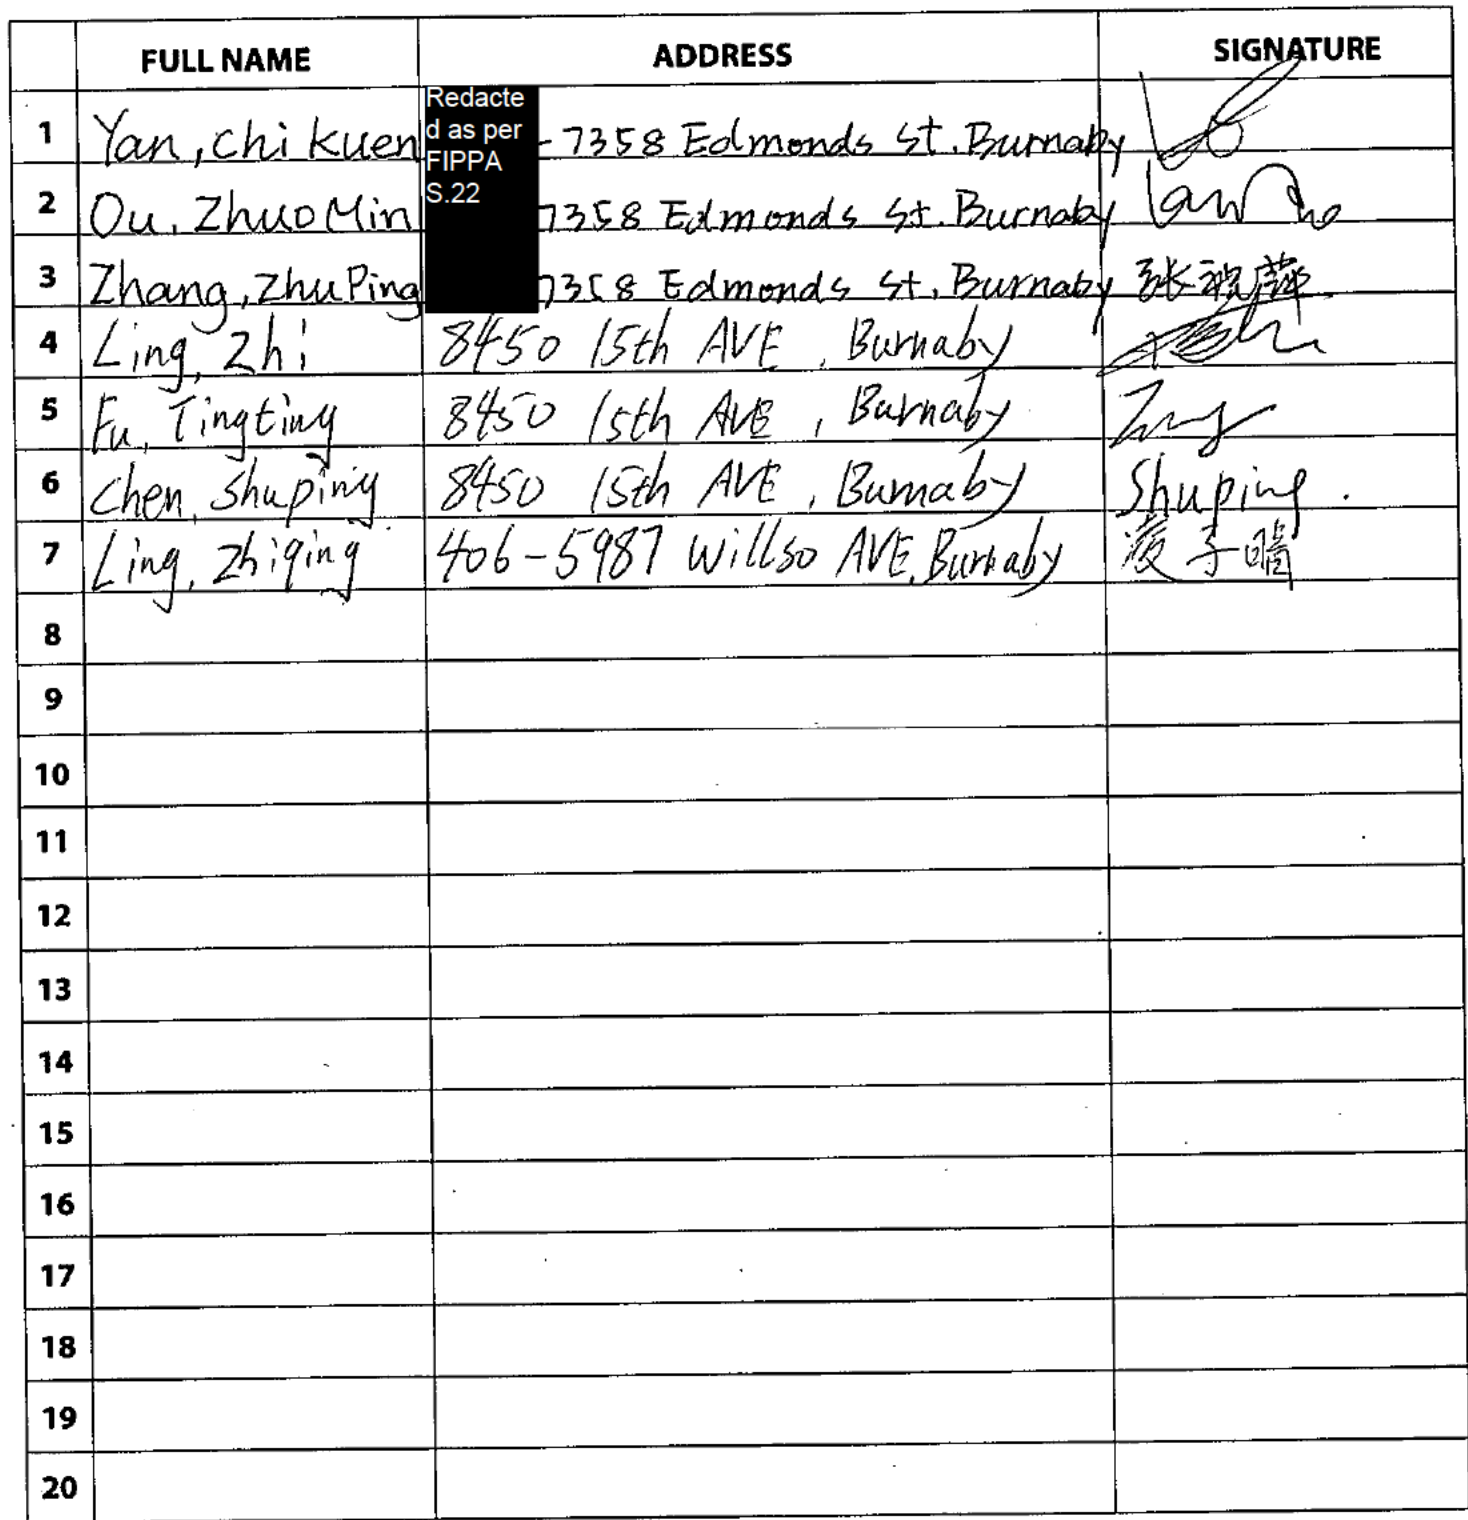 FULL NAME ADDRESS SIGNATURE
1 Yan, Chi Kuen Redacte - 7358 Edmonds St. Burnaby
d as per
FIPPA
S.22
2 Ou, ZhuoMin 7358 Edmonds St. Burnaby
3 Zhang, ZhuPing 7358 Edmonds St. Burnaby 张祝萍
4 Ling, Zhi 8450 15th AVE, Burnaby
5 Fu, Tingting 8450 15th AVE, Burnaby
6 Chen, Shuping 8450 15th AVE, Burnaby Shuping.
7 Ling, Zhiqing 406-5987 Willso AVE, Burnaby 凌子晴
8
9
10
11
12
13
14
15
16
17
18
19
20